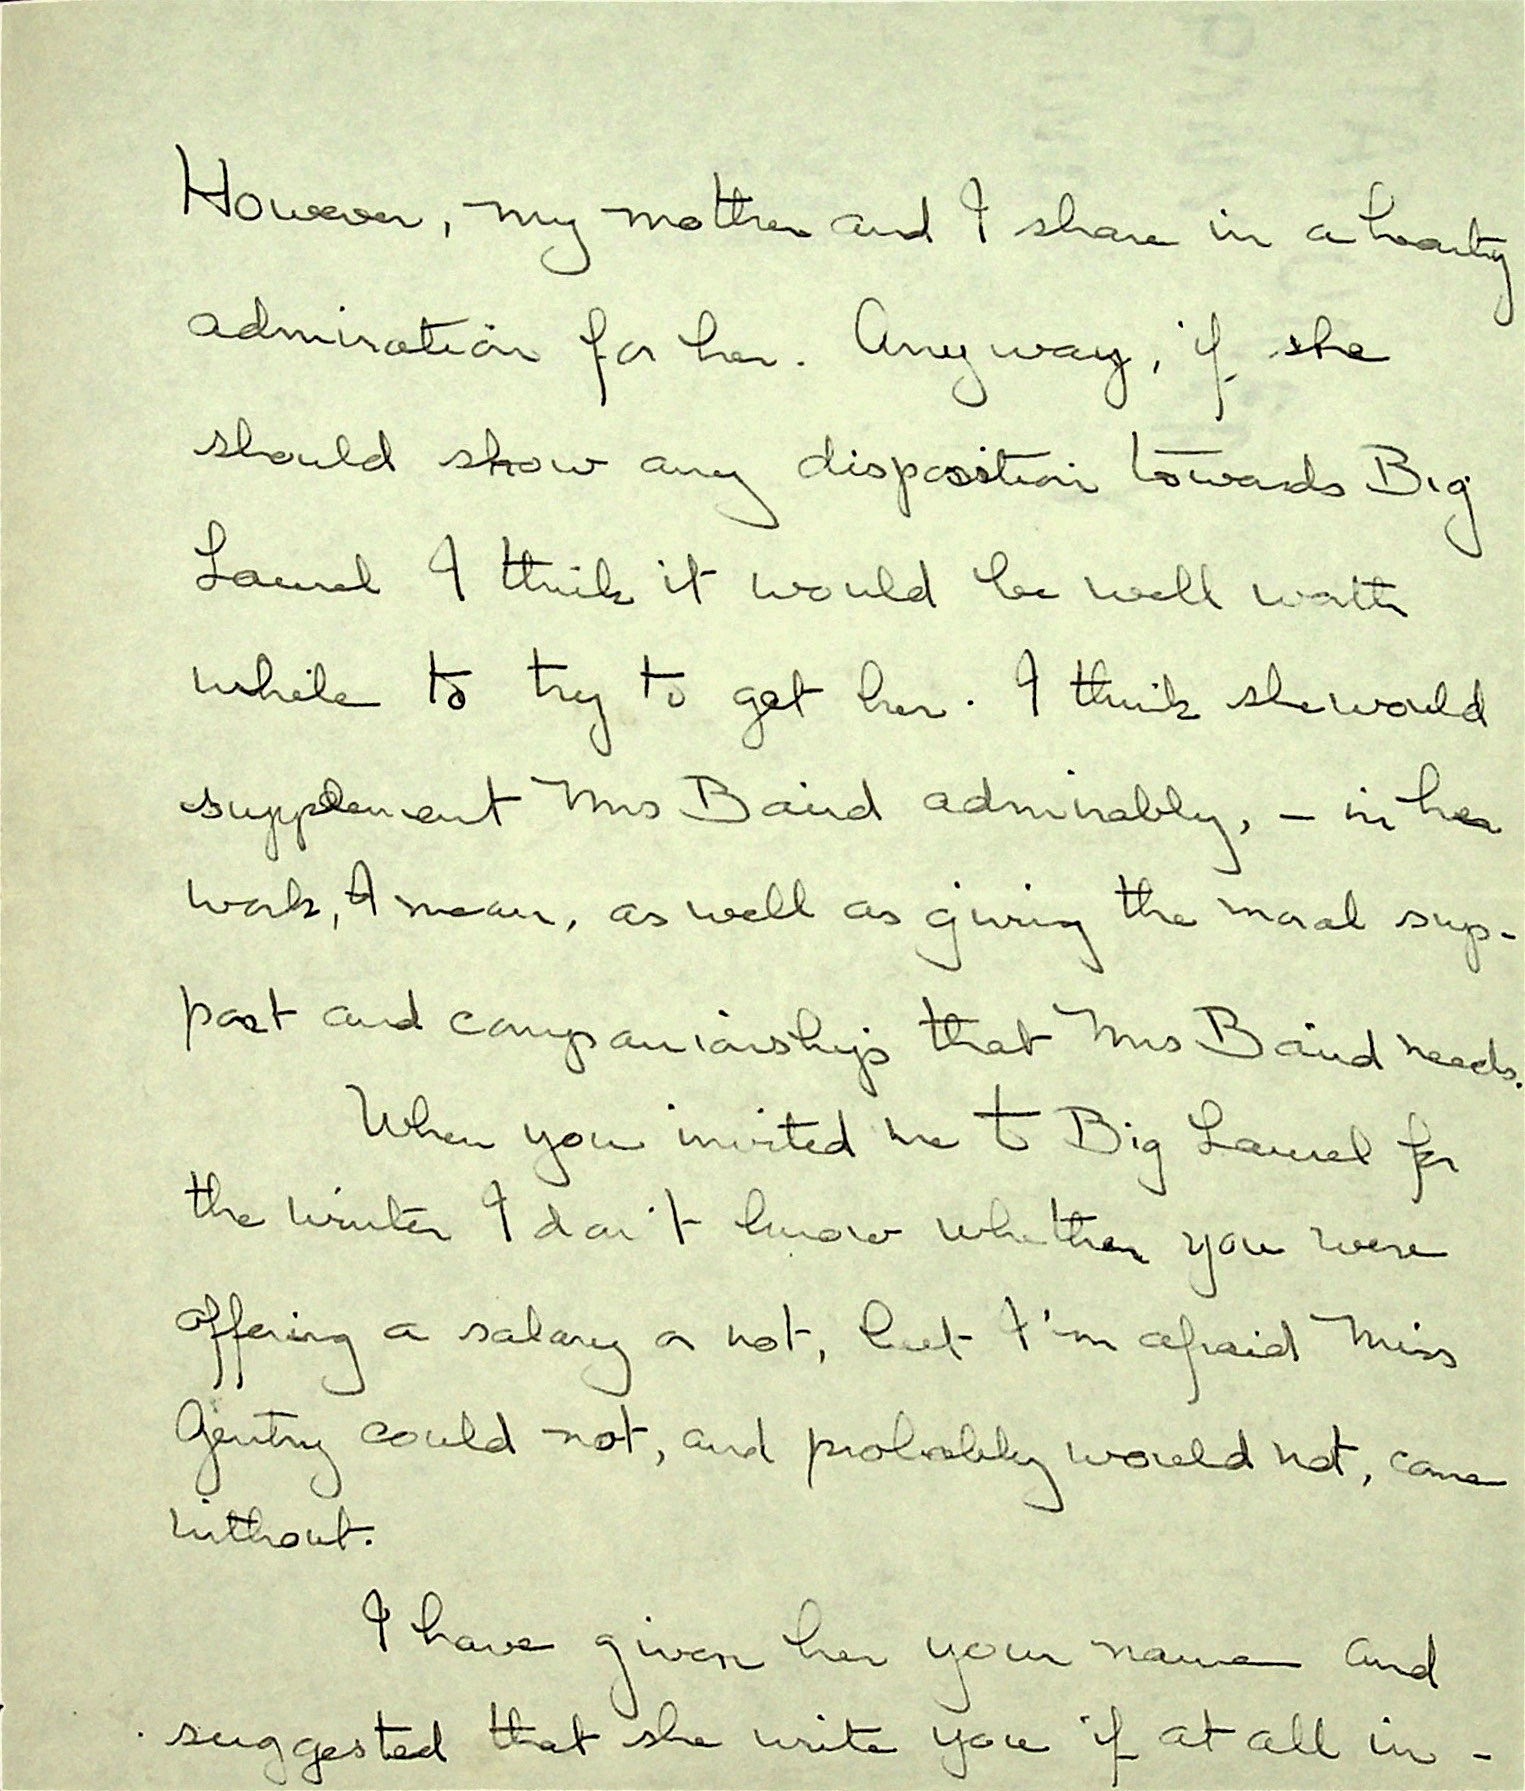 However, my mother and I share in a hearty
admiration for her. Anyway, if she
should show any disposition towards Big
Laurel I think it would be well worth
while to try to get her. I think she would
supplement Mrs Baird admirably, – in her
work, I mean, as well as giving the moral sup-
port and companionship that Mrs Baird needs.
When you invited me to Big Laurel for
the winter I don't know whether you were
offering a salary or not, but I'm afraid Miss
Gentry could not, and probably would not, come
without.
I have given her your name and
suggested that she write you if at all in-